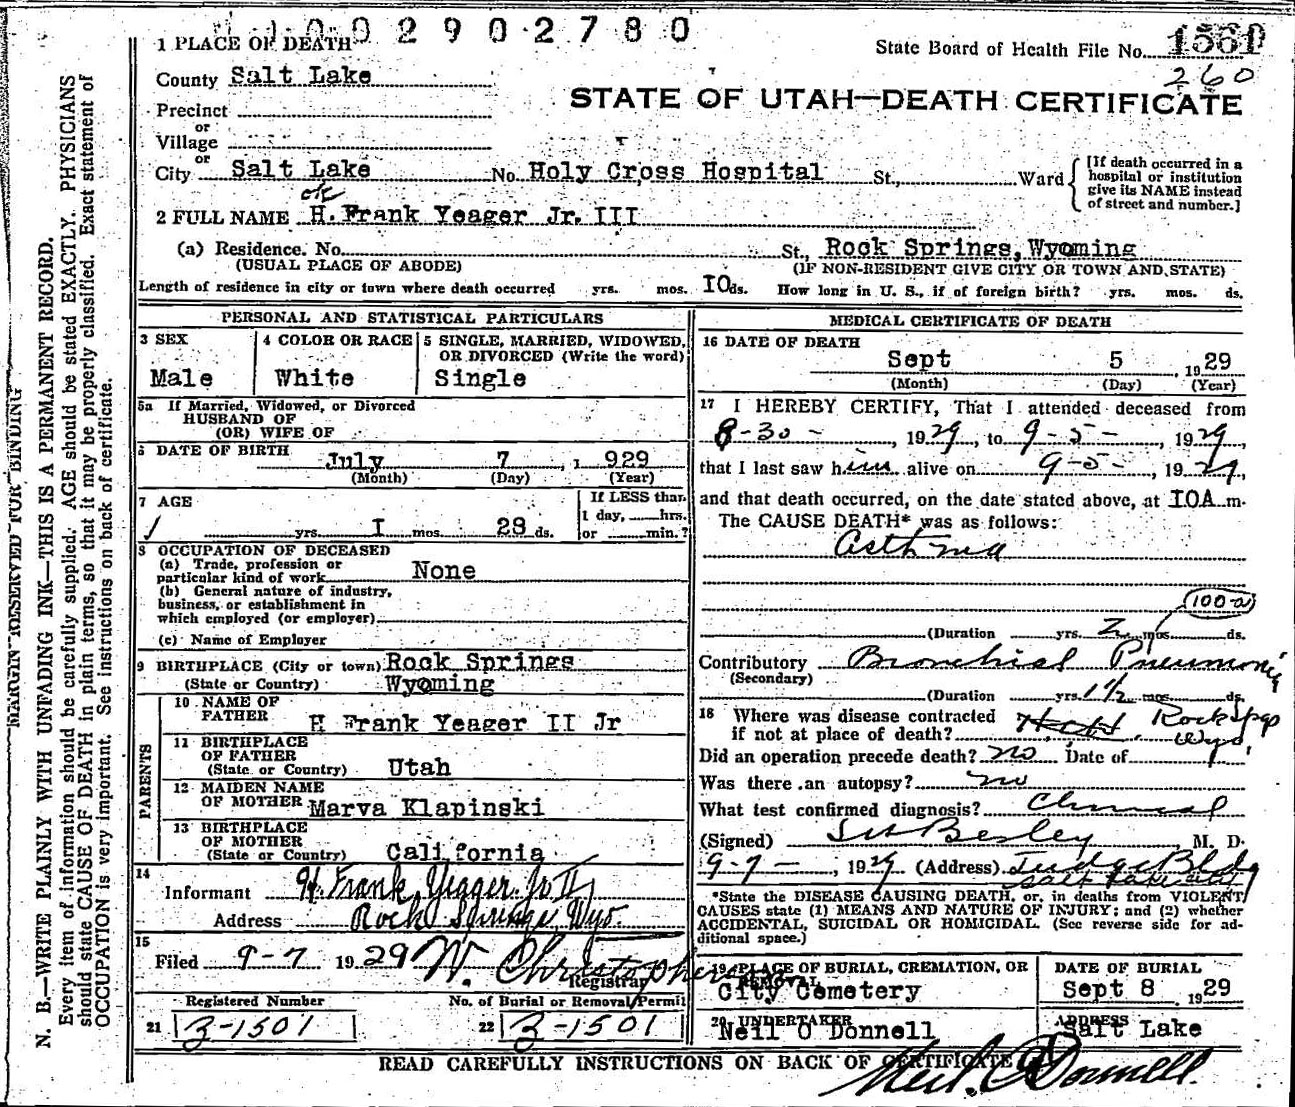 0 0 2 9 0 2 7 8 0
1 PLACE OF DEATH
State Board of Health File No. 1561
260
County Salt Lake
STATE OF UTAH—DEATH CERTIFICATE
Precinct
or
Village
or
City Salt Lake No. Holy Cross Hospital St., Ward
[If death occurred in a hospital or institution give its NAME instead of street and number.]
ok
2 FULL NAME H. Frank Yeager Jr. III
(a) Residence. No. St., Rock Springs, Wyoming
(USUAL PLACE OF ABODE) (IF NON-RESIDENT GIVE CITY OR TOWN AND STATE)
Length of residence in city or town where death occurred yrs. mos. 10 ds. How long in U. S., if of foreign birth? yrs. mos. ds.
PERSONAL AND STATISTICAL PARTICULARS
3 SEX
Male
4 COLOR OR RACE
White
5 SINGLE, MARRIED, WIDOWED,
OR DIVORCED (Write the word)
Single
5a If Married, Widowed, or Divorced
HUSBAND OF
(OR) WIFE OF
6 DATE OF BIRTH
July 7, 1929
(Month) (Day) (Year)
7 AGE
yrs. 1 mos. 28 ds.
If LESS than
1 day, hrs.
or min.?
8 OCCUPATION OF DECEASED
(a) Trade, profession or
particular kind of work None
(b) General nature of industry,
business, or establishment in
which employed (or employer)
(c) Name of Employer
9 BIRTHPLACE (City or town) Rock Springs
(State or Country) Wyoming
PARENTS
10 NAME OF
FATHER H Frank Yeager II Jr
11 BIRTHPLACE
OF FATHER
(State or Country) Utah
12 MAIDEN NAME
OF MOTHER Marva Klapinski
13 BIRTHPLACE
OF MOTHER
(State or Country) California
14
Informant H. Frank Yeager Jr II
Address Rock Springs Wyo.
15
Filed 9-7 1929 W. Christophers
Registrar
Registered Number No. of Burial or Removal Permit
21 3-1501 22 3-1501
MEDICAL CERTIFICATE OF DEATH
16 DATE OF DEATH
Sept 5, 1929
(Month) (Day) (Year)
17 I HEREBY CERTIFY, That I attended deceased from
8-30-, 1929, to 9-5-, 1929,
that I last saw him alive on 9-5-, 1929,
and that death occurred, on the date stated above, at 10A m.
The CAUSE DEATH* was as follows:
Asthma
100-a
(Duration yrs. 2 mos. ds.
Contributory Bronchial Pneumonia
(Secondary)
(Duration yrs. 1½ mos. ds.
18 Where was disease contracted
if not at place of death? Rock Spgs Wyo.
Did an operation precede death? no Date of
Was there an autopsy? no
What test confirmed diagnosis? Clinical
(Signed) Besley M. D.
9-7-, 1929 (Address) Judge Bldg
Salt Lake City
*State the DISEASE CAUSING DEATH, or, in deaths from VIOLENT
CAUSES state (1) MEANS AND NATURE OF INJURY; and (2) whether
ACCIDENTAL, SUICIDAL OR HOMICIDAL. (See reverse side for ad-
ditional space.)
19 PLACE OF BURIAL, CREMATION, OR
REMOVAL
City Cemetery
DATE OF BURIAL
Sept 8, 1929
20 UNDERTAKER
Neil O Donnell
ADDRESS
Salt Lake
READ CAREFULLY INSTRUCTIONS ON BACK OF CERTIFICATE
Neil O'Donnell.
MARGIN RESERVED FOR BINDING
N. B.—WRITE PLAINLY WITH UNFADING INK—THIS IS A PERMANENT RECORD.
Every item of information should be carefully supplied. AGE should be stated EXACTLY. PHYSICIANS
should state CAUSE OF DEATH in plain terms, so that it may be properly classified. Exact statement of
OCCUPATION is very important. See instructions on back of certificate.